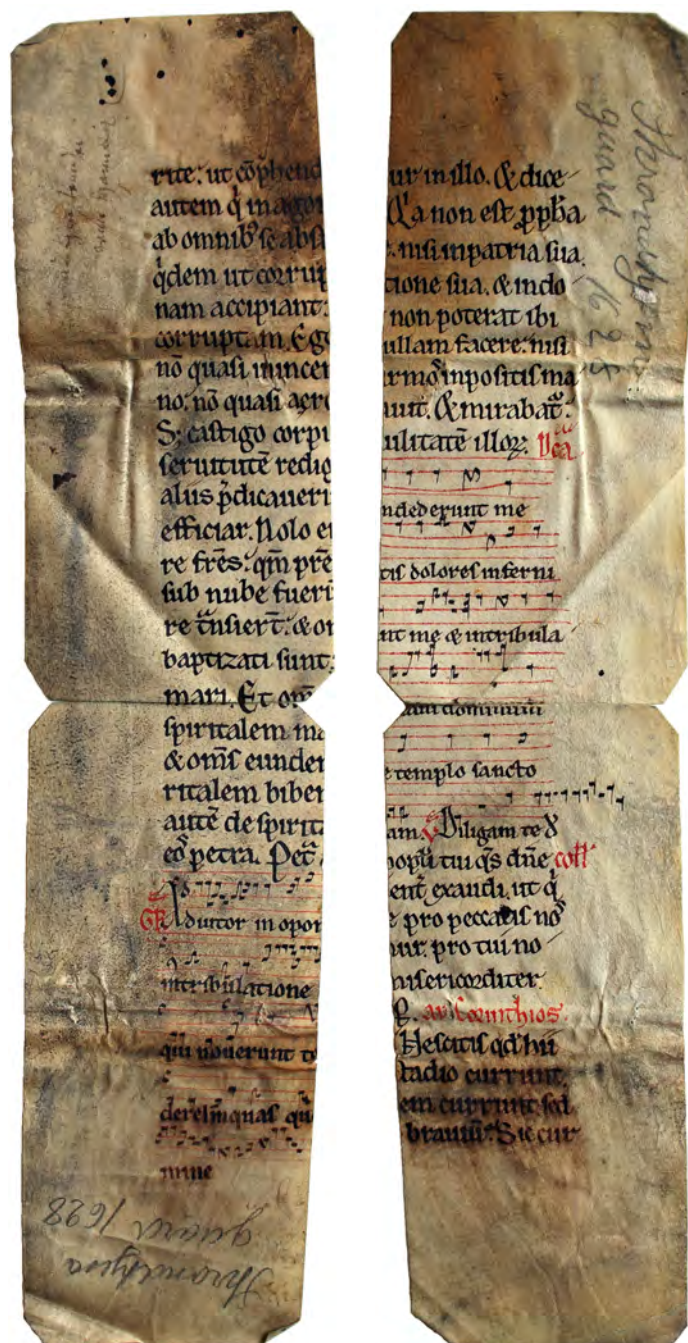 rite: ut cōp̄hend
autem q̇ in agon
ab omnibꝰ se absti
q̇dem ut corrup
nam accipiant:
corruptam. Ego
nō quasi inincer
no: nō quasi aere
S; castigo corpꝰ
seruitutē redig
aliis p̄dicaueri
efficiar. Nolo e
re fr̄es: qm̄ 
sub nube fueri
re t̃nsiert̄: & om
baptizati sunt:
mari. Et om̄
spiritalem
& om̄s eundem
ritalem biber
autē de spirit
eos petra. Pet̃
Gr̄ Adiutor in opor
in tribulatione
qui nouerunt te
derelinquas qu
mine
Thrandhjems
guard 1628
ur in illo. & dice
Q̇a non est ꝓph̄a
e: nisi in patria sua.
tione sua. & in do
non poterat ibi
ullam facere: nisi
irmos inpositis ma
auit. & mirabat̃:
ulitatē illoꝝ.
ndederunt me
tis dolores inferni
nt me & in tribula
am dominum
e templo sancto
am. V̄ Diligam te d
popli tui q̄s dn̄e coll
ent̃ exaudi. ut q̇
e pro peccatis no
ur. pro tui no
misericorditer.
ad Corinthios.
Nescitis qd̄ hii
tadio currunt.
em currunt sed
brauiū. Sic cur
Thrandhjems
guard 1628